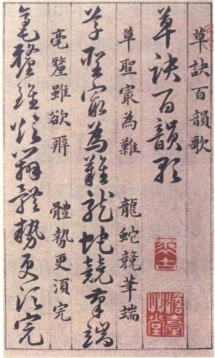 草訣百韻歌
草訣百韻歌
草聖冣為難　龍蛇競筆端
草聖冣為難龍蛇競筆端
毫釐雖欲辨　體勢更須完
毫釐雖欲辨體勢更須完